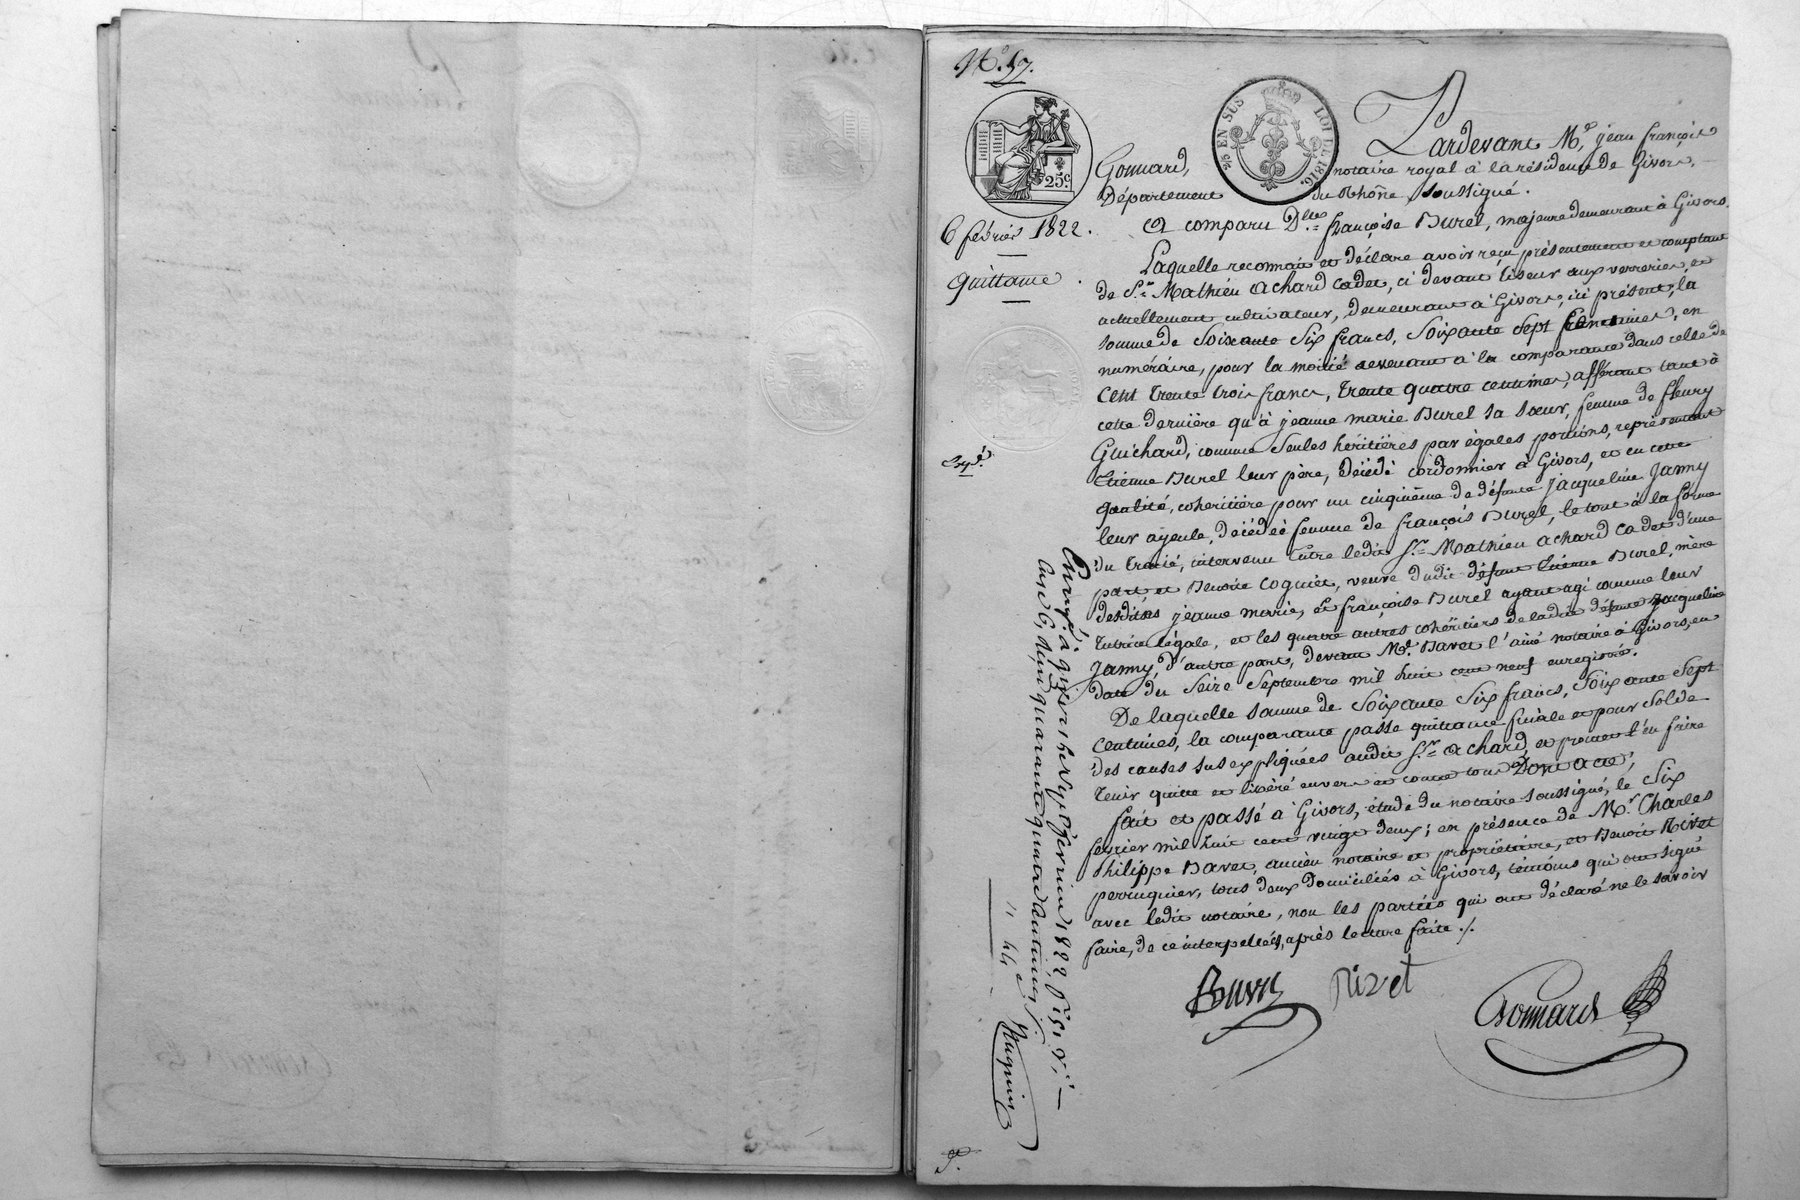 N.° 57.
25.c
25/c EN SUS LOI DE 1816.
6 février 1822.
quittance
Expé.
Pardevant M.e jean françois
Gonnard, notaire royal à la résidence de Givors,
Département du Rhône, soussigné.
a comparu D.lle françoise Burel, majeure demeurant à Givors.
Laquelle reconnait et déclare avoir reçu présentement et comptant
de S.r Mathieu achard cadet, ci devant tiseur aux verreries, et
actuellement cultivateur, demeurant à Givors, ici présent, la
somme de soixante six francs, soixante sept centimes, en
numéraire, pour la moitié revenant à la comparante dans celle de
cent trente trois francs, trente quatre centimes, afférant tant à
cette dernière qu'à jeanne marie Burel sa sœur, femme de fleury
Guichard, comme seules héritières par égales portions, représentant
Etienne Burel leur père, décédé cordonnier à Givors, et en cette
qualité, cohéritière pour un cinquième de défunte jacqueline janny
leur ayeule, décédée femme de françois Burel, le tout à la forme
du traité, intervenu entre ledit S.r Mathieu achard cadet d'une
part et Benoite Coguiet, veuve dudit défunt Etienne Burel, mère
desdites jeanne marie, et françoise Burel ayant agi comme leur
tutrice légale, et les quatre autres cohéritiers de ladite défunte jacqueline
janny, d'autre part, devant M.e Bavet l'ainé notaire à Givors, en
date du seize septembre mil huit cent neuf enregistré.
De laquelle somme de soixante six francs, soixante sept
centimes, la comparante passe quittance finale et pour solde
des causes sus expliquées audit S.r achard, et promet l'en faire
tenir quitte et libéré envers et contre tous Dont acte,
fait et passé à Givors, étude du notaire soussigné, le six
février mil huit cent vingt deux; en présence de M.r Charles
Philippe Bavet, ancien notaire et propriétaire, et Benoit Rivet
perruquier, tous deux domiciliés à Givors, témoins qui ont signé
avec ledit notaire, non les parties qui ont déclaré ne le savoir
faire, de ce interpellées, après lecture faite ./.
Rivet
Gonnard
Enregé. à givors le sept février 1822 f.° 51 v.°
reçu quarante quatre centimes